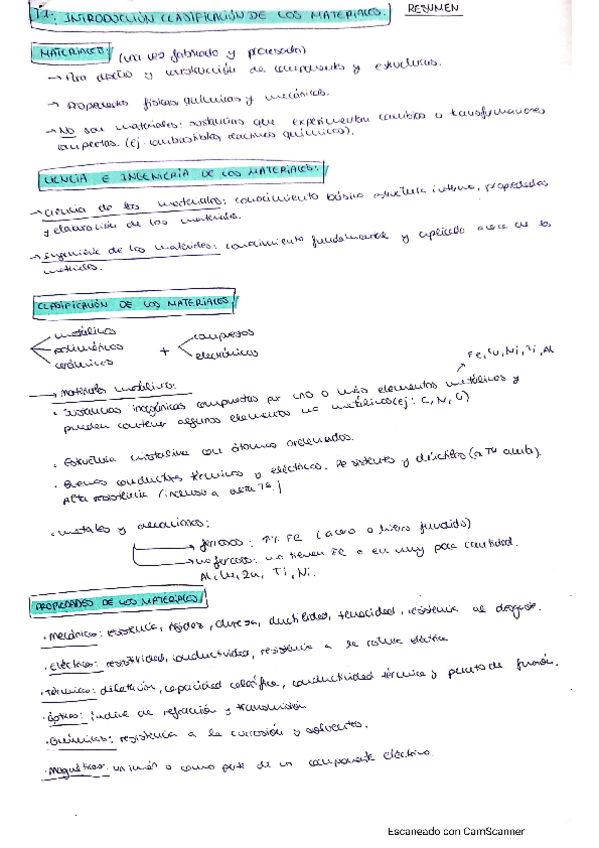 T.1: INTRODUCCIÓN CLASIFICACIÓN DE LOS MATERIALES. RESUMEN
MATERIALES: (una vez fabricado y procesado)
→ Para diseño y construcción de componentes y estructuras.
→ Propiedades físicas, químicas y mecánicas.
→ No son materiales: sustancias que experimentan cambios o transformaciones
(ej: combustibles, reactivos químicos).
CIENCIA E INGENIERÍA DE LOS MATERIALES:
→ Ciencia de los materiales: conocimiento básico estructura interna, propiedades
y elaboración de los materiales.
→ Ingeniería de los materiales: conocimiento fundamental y aplicado acerca de los
materiales.
CLASIFICACIÓN DE LOS MATERIALES
metálicos
poliméricos
cerámicos
+
compuestos
electrónicos
Fe, Cu, Ni, Ti, Al
→ Materiales metálicos:
· Sustancias inorgánicas compuestas por uno o más elementos metálicos y
pueden contener algunos elementos no metálicos (ej: C, N, O)
· Estructura cristalina con átomos ordenados.
· Buenos conductores térmicos y eléctricos. Resistentes y dúctiles (a Tª amb).
Alta resistencia (incluso a alta Tª.)
· metales y aleaciones:
→ ferrosos: ↑% Fe (acero o hierro fundido)
→ no ferrosos: no tienen Fe o en muy poca cantidad.
Al, Cu, Zn, Ti, Ni.
PROPIEDADES DE LOS MATERIALES
· Mecánicas: resistencia, rigidez, dureza, ductilidad, tenacidad, resistencia al desgaste.
· Eléctricas: resistividad, conductividad, resistencia a la rotura eléctrica
· Térmicas: dilatación, capacidad calorífica, conductividad térmica y punto de fusión.
· Ópticas: índice de refracción y transmisión
· Químicas: resistencia a la corrosión y solventes.
· Magnéticas: un imán o como parte de un componente eléctrico.
Escaneado con CamScanner